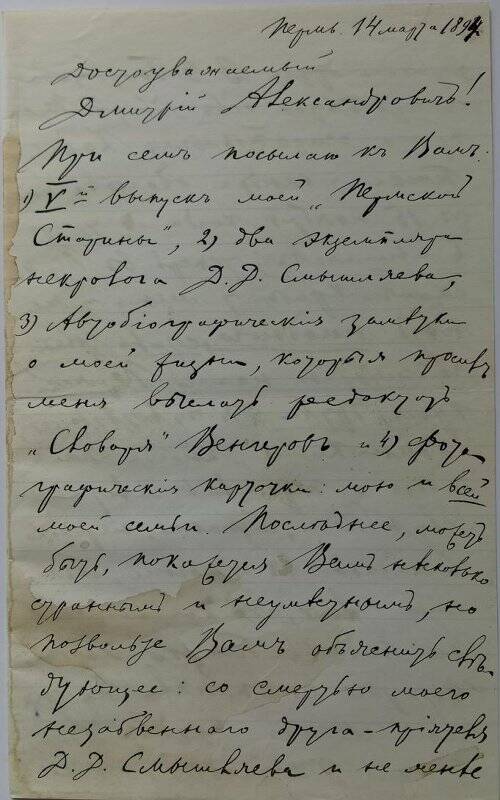 Пермь. 14 марта 1894
Достоуважаемый
Дмитрій Александровичъ!
При семъ посылаю къ Вамъ:
1) V-й выпускъ моей „Пермской
Старины", 2) два экземпляра
некролога Д. Д. Смышляева,
3) Автобіографическія замѣтки
о моей жизни, которыя просилъ
меня выслать редакторъ
„Словаря" Венгеровъ и 4) фото-
графическія карточки: мою и всей
моей семьи. Последнее, можетъ
быть, покажется Вамъ несколько
страннымъ и неумѣстнымъ, но
позвольте Вамъ объяснить слѣ-
дующее: со смертью моего
незабвеннаго друга-пріятеля
Д. Д. Смышляева и не менѣе